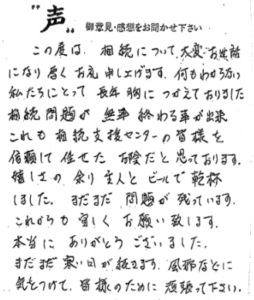 "声"
御意見・感想をお聞かせ下さい
この度は、相続について、大変お世話
になり厚くお礼申し上げます。何もわからない
私たちにとって 長年胸につかえておりました
相続問題が 無事終わる事が出来
これも相続支援センターの皆様を
信頼して任せたお陰だと思っております。
嬉しさの余り主人とビールで乾杯
しました。まだまだ問題が残っています。
これからも宜しくお願い致します。
本当にありがとうございました。
まだまだ寒い日が続きます。風邪などに
気をつけて、皆様のために頑張って下さい。